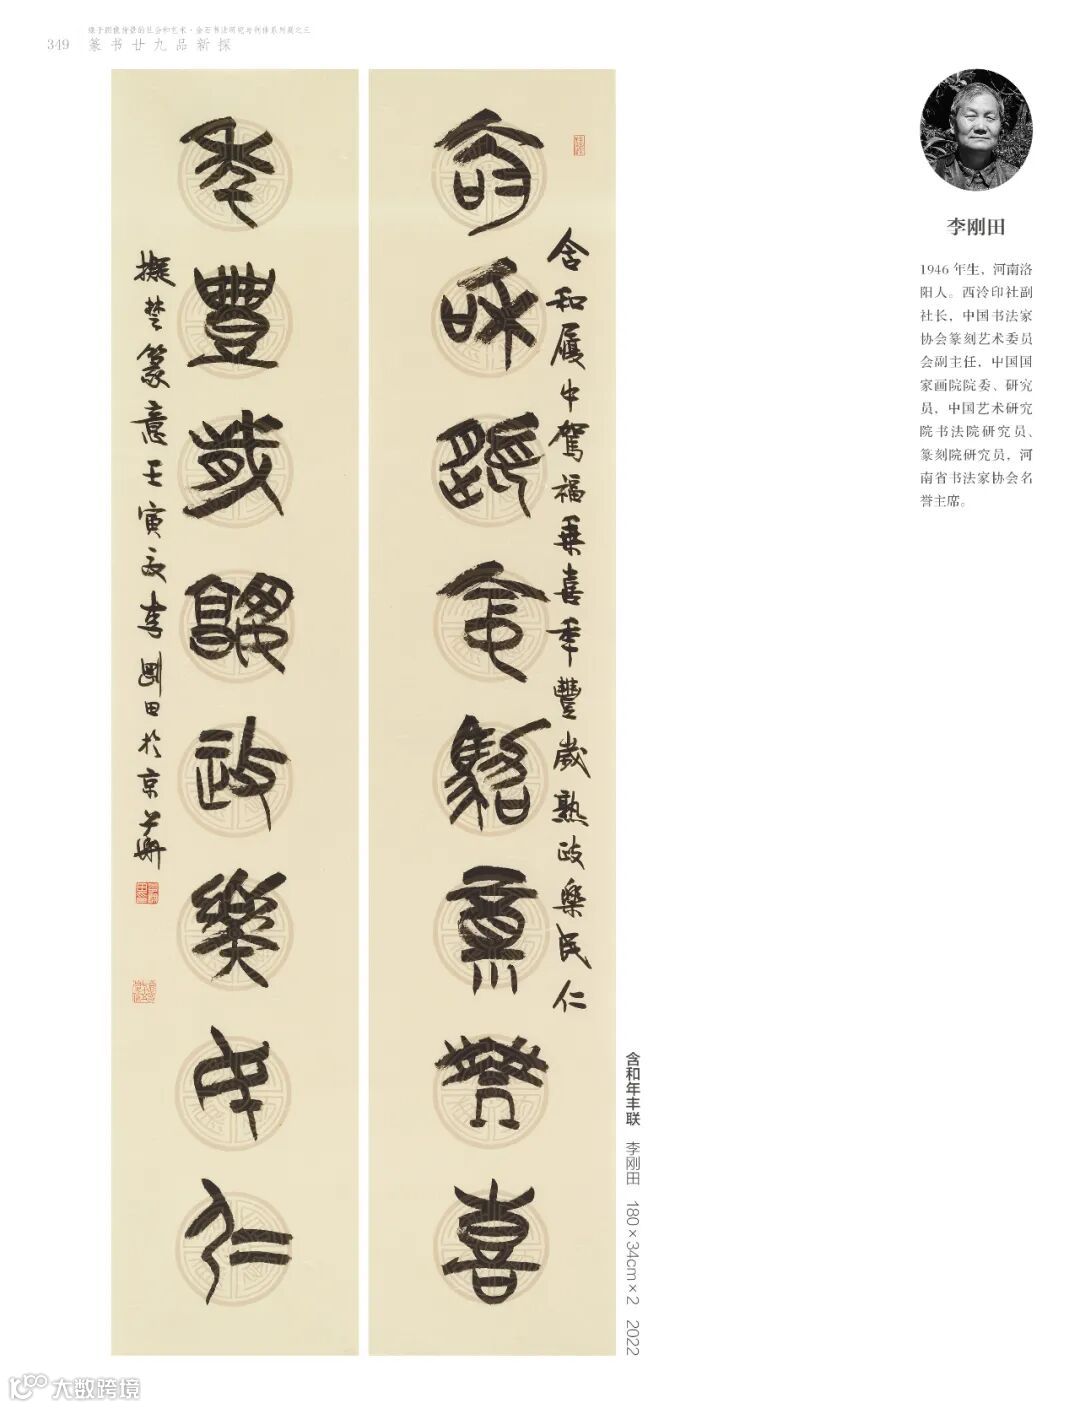 349
缘于图像背景的社会和艺术·金石书法研究与创作系列展之三
篆书廿九品新探
含和履中驾福乘喜
年丰岁熟政乐民仁
含和履中駕福乘喜年豐歲熟政樂民仁
擬楚篆意壬寅夏李剛田於京華
李刚田
1946 年生，河南洛
阳人。西泠印社副
社长，中国书法家
协会篆刻艺术委员
会副主任，中国国
家画院院委、研究
员，中国艺术研究
院书法院研究员、
篆刻院研究员，河
南省书法家协会名
誉主席。
含和年丰联 李刚田 180×34cm×2 2022
大数跨境